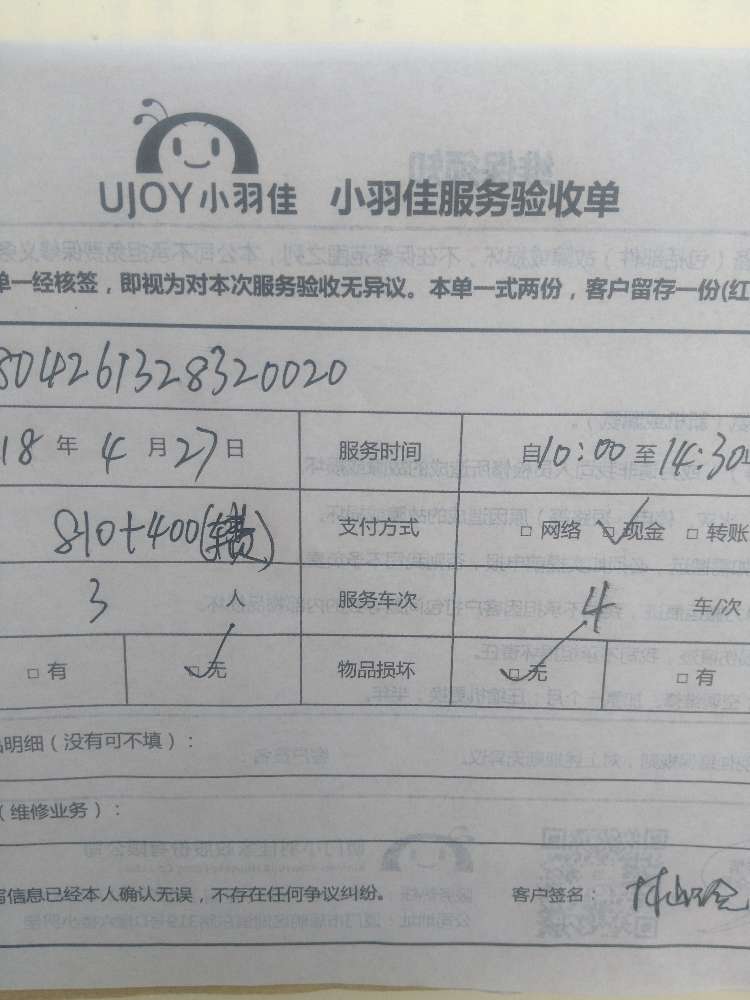 UJOY小羽佳 小羽佳服务验收单
单一经核签，即视为对本次服务验收无异议。本单一式两份，客户留存一份(红
804261328320020
18 年 4 月 27 日 服务时间 自10:00 至 14:30
810+400 支付方式 □ 网络 □ 现金 □ 转账
3 人 服务车次 4 车/次
□ 有 □ 无 物品损坏 □ 无 □ 有
品明细（没有可不填）：
（维修业务）：
信息已经本人确认无误，不存在任何争议纠纷。 客户签名：